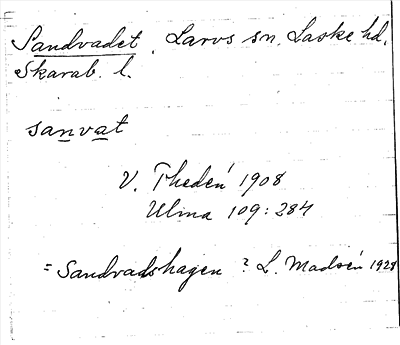 Sandvadet. Larvs sn. Laske hd.
Skarab. l.
sanvat
V. Thedén 1908
Ulma 109:284
= Sandvadshagen? L. Madsén 1928